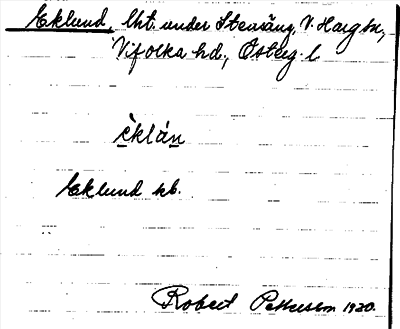 Eklund, lht. under Stenäng, V. Harg sn,
Vifolka hd., Österg. l.
èklán
Eklund kb.
Robert Pettersson 1920.